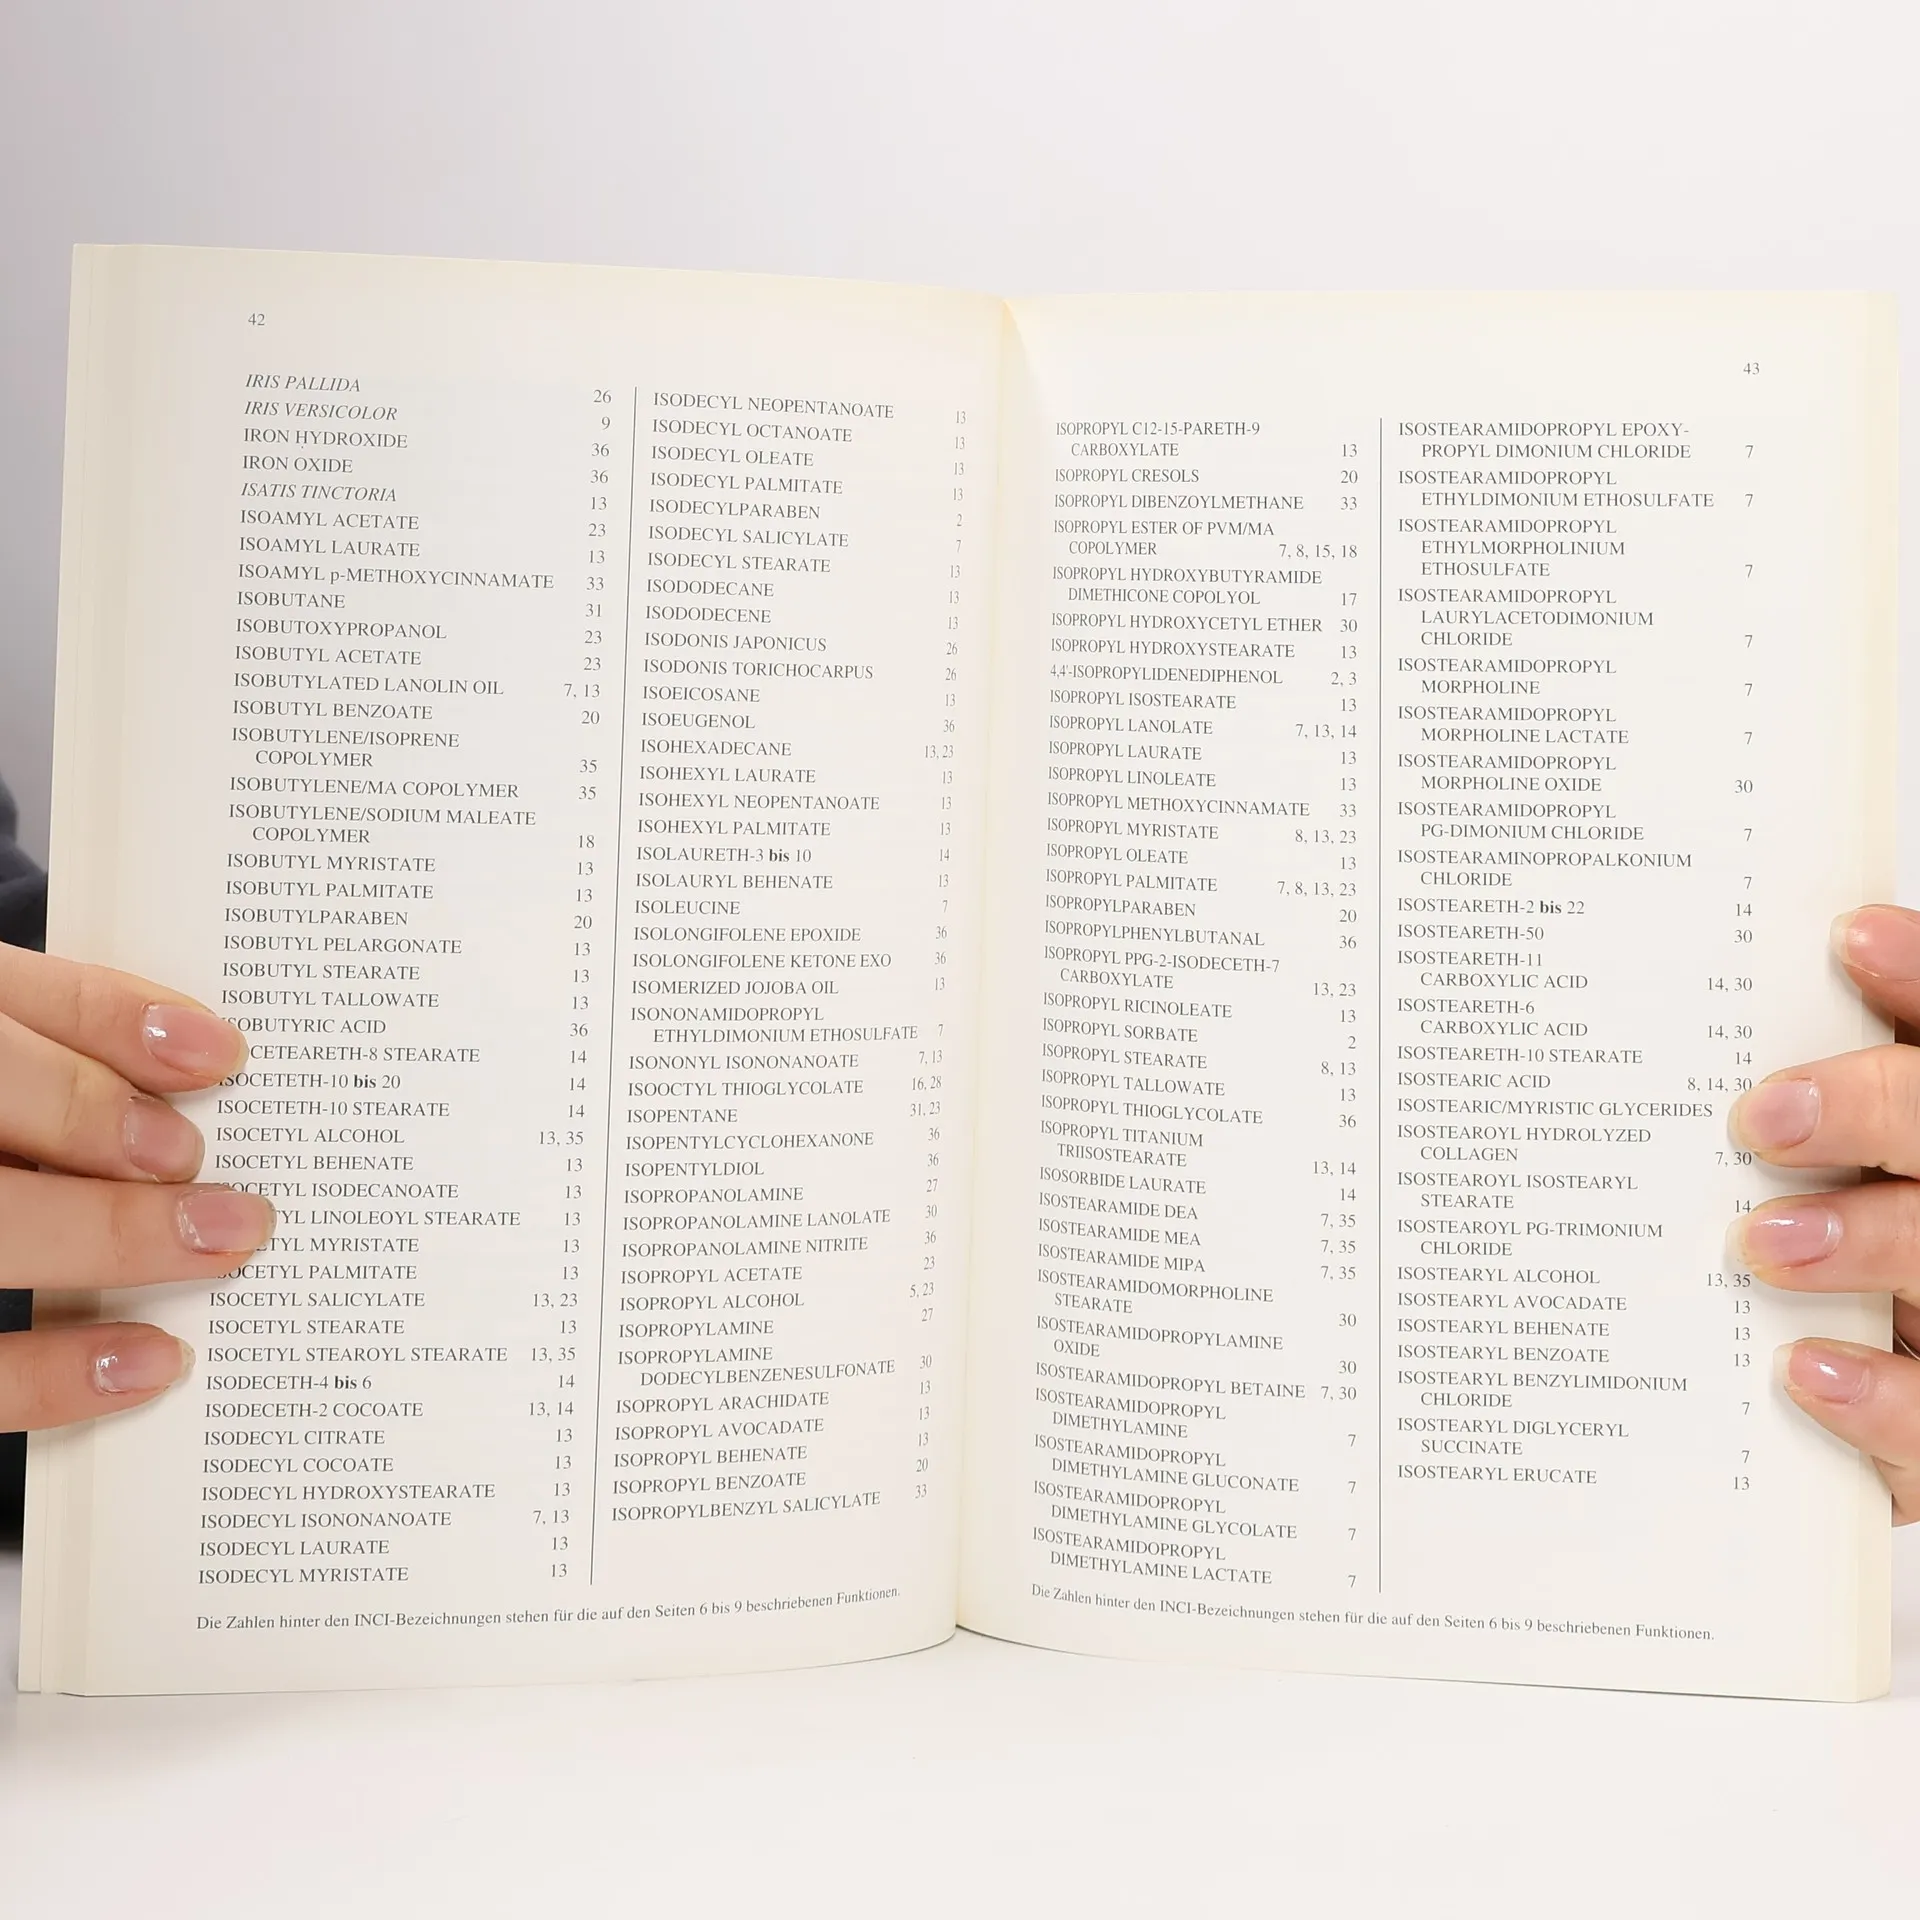 42
IRIS PALLIDA 26
IRIS VERSICOLOR 9
IRON HYDROXIDE 36
IRON OXIDE 36
ISATIS TINCTORIA 13
ISOAMYL ACETATE 23
ISOAMYL LAURATE 13
ISOAMYL p-METHOXYCINNAMATE 33
ISOBUTANE 31
ISOBUTOXYPROPANOL 23
ISOBUTYL ACETATE 23
ISOBUTYLATED LANOLIN OIL 7, 13
ISOBUTYL BENZOATE 20
ISOBUTYLENE/ISOPRENE
COPOLYMER 35
ISOBUTYLENE/MA COPOLYMER 35
ISOBUTYLENE/SODIUM MALEATE
COPOLYMER 18
ISOBUTYL MYRISTATE 13
ISOBUTYL PALMITATE 13
ISOBUTYLPARABEN 20
ISOBUTYL PELARGONATE 13
ISOBUTYL STEARATE 13
ISOBUTYL TALLOWATE 13
ISOBUTYRIC ACID 36
CETEARETH-8 STEARATE 14
ISOCETETH-10 bis 20 14
ISOCETETH-10 STEARATE 14
ISOCETYL ALCOHOL 13, 35
ISOCETYL BEHENATE 13
OCETYL ISODECANOATE 13
TYL LINOLEOYL STEARATE 13
ETYL MYRISTATE 13
OCETYL PALMITATE 13
ISOCETYL SALICYLATE 13, 23
ISOCETYL STEARATE 13
ISOCETYL STEAROYL STEARATE 13, 35
ISODECETH-4 bis 6 14
ISODECETH-2 COCOATE 13, 14
ISODECYL CITRATE 13
ISODECYL COCOATE 13
ISODECYL HYDROXYSTEARATE 13
ISODECYL ISONONANOATE 7, 13
ISODECYL LAURATE 13
ISODECYL MYRISTATE 13
ISODECYL NEOPENTANOATE 13
ISODECYL OCTANOATE 13
ISODECYL OLEATE 13
ISODECYL PALMITATE 13
ISODECYLPARABEN 2
ISODECYL SALICYLATE 7
ISODECYL STEARATE 13
ISODODECANE 13
ISODODECENE 13
ISODONIS JAPONICUS 26
ISODONIS TORICHOCARPUS 26
ISOEICOSANE 13
ISOEUGENOL 36
ISOHEXADECANE 13, 23
ISOHEXYL LAURATE 13
ISOHEXYL NEOPENTANOATE 13
ISOHEXYL PALMITATE 13
ISOLAURETH-3 bis 10 14
ISOLAURYL BEHENATE 13
ISOLEUCINE 7
ISOLONGIFOLENE EPOXIDE 36
ISOLONGIFOLENE KETONE EXO 36
ISOMERIZED JOJOBA OIL 13
ISONONAMIDOPROPYL
ETHYLDIMONIUM ETHOSULFATE 7
ISONONYL ISONONANOATE 7, 13
ISOOCTYL THIOGLYCOLATE 16, 28
ISOPENTANE 31, 23
ISOPENTYLCYCLOHEXANONE 36
ISOPENTYLDIOL 36
ISOPROPANOLAMINE 27
ISOPROPANOLAMINE LANOLATE 30
ISOPROPANOLAMINE NITRITE 36
ISOPROPYL ACETATE 23
ISOPROPYL ALCOHOL 5, 23
ISOPROPYLAMINE 27
ISOPROPYLAMINE
DODECYLBENZENESULFONATE 30
ISOPROPYL ARACHIDATE 13
ISOPROPYL AVOCADATE 13
ISOPROPYL BEHENATE 13
ISOPROPYL BENZOATE 20
ISOPROPYLBENZYL SALICYLATE 33
Die Zahlen hinter den INCI-Bezeichnungen stehen für die auf den Seiten 6 bis 9 beschriebenen Funktionen.
43
ISOPROPYL C12-15-PARETH-9
CARBOXYLATE 13
ISOPROPYL CRESOLS 20
ISOPROPYL DIBENZOYLMETHANE 33
ISOPROPYL ESTER OF PVM/MA
COPOLYMER 7, 8, 15, 18
ISOPROPYL HYDROXYBUTYRAMIDE
DIMETHICONE COPOLYOL 17
ISOPROPYL HYDROXYCETYL ETHER 30
ISOPROPYL HYDROXYSTEARATE 13
4,4'-ISOPROPYLIDENEDIPHENOL 2, 3
ISOPROPYL ISOSTEARATE 13
ISOPROPYL LANOLATE 7, 13, 14
ISOPROPYL LAURATE 13
ISOPROPYL LINOLEATE 13
ISOPROPYL METHOXYCINNAMATE 33
ISOPROPYL MYRISTATE 8, 13, 23
ISOPROPYL OLEATE 13
ISOPROPYL PALMITATE 7, 8, 13, 23
ISOPROPYLPARABEN 20
ISOPROPYLPHENYLBUTANAL 36
ISOPROPYL PPG-2-ISODECETH-7
CARBOXYLATE 13, 23
ISOPROPYL RICINOLEATE 13
ISOPROPYL SORBATE 2
ISOPROPYL STEARATE 8, 13
ISOPROPYL TALLOWATE 13
ISOPROPYL THIOGLYCOLATE 36
ISOPROPYL TITANIUM
TRIISOSTEARATE 13, 14
ISOSORBIDE LAURATE 14
ISOSTEARAMIDE DEA 7, 35
ISOSTEARAMIDE MEA 7, 35
ISOSTEARAMIDE MIPA 7, 35
ISOSTEARAMIDOMORPHOLINE
STEARATE 30
ISOSTEARAMIDOPROPYLAMINE
OXIDE 30
ISOSTEARAMIDOPROPYL BETAINE 7, 30
ISOSTEARAMIDOPROPYL
DIMETHYLAMINE 7
ISOSTEARAMIDOPROPYL
DIMETHYLAMINE GLUCONATE 7
ISOSTEARAMIDOPROPYL
DIMETHYLAMINE GLYCOLATE 7
ISOSTEARAMIDOPROPYL
DIMETHYLAMINE LACTATE 7
ISOSTEARAMIDOPROPYL EPOXY-
PROPYL DIMONIUM CHLORIDE 7
ISOSTEARAMIDOPROPYL
ETHYLDIMONIUM ETHOSULFATE 7
ISOSTEARAMIDOPROPYL
ETHYLMORPHOLINIUM
ETHOSULFATE 7
ISOSTEARAMIDOPROPYL
LAURYLACETODIMONIUM
CHLORIDE 7
ISOSTEARAMIDOPROPYL
MORPHOLINE 7
ISOSTEARAMIDOPROPYL
MORPHOLINE LACTATE 7
ISOSTEARAMIDOPROPYL
MORPHOLINE OXIDE 30
ISOSTEARAMIDOPROPYL
PG-DIMONIUM CHLORIDE 7
ISOSTEARAMINOPROPALKONIUM
CHLORIDE 7
ISOSTEARETH-2 bis 22 14
ISOSTEARETH-50 30
ISOSTEARETH-11
CARBOXYLIC ACID 14, 30
ISOSTEARETH-6
CARBOXYLIC ACID 14, 30
ISOSTEARETH-10 STEARATE 14
ISOSTEARIC ACID 8, 14, 30
ISOSTEARIC/MYRISTIC GLYCERIDES
ISOSTEAROYL HYDROLYZED
COLLAGEN 7, 30
ISOSTEAROYL ISOSTEARYL
STEARATE 14
ISOSTEAROYL PG-TRIMONIUM
CHLORIDE
ISOSTEARYL ALCOHOL 13, 35
ISOSTEARYL AVOCADATE 13
ISOSTEARYL BEHENATE 13
ISOSTEARYL BENZOATE 13
ISOSTEARYL BENZYLIMIDONIUM
CHLORIDE 7
ISOSTEARYL DIGLYCERYL
SUCCINATE 7
ISOSTEARYL ERUCATE 13
Die Zahlen hinter den INCI-Bezeichnungen stehen für die auf den Seiten 6 bis 9 beschriebenen Funktionen.